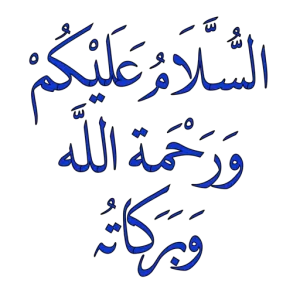 السُّلَّامُ عَلَيْكُمْ
وَرَحْمَة اللَّه
وَبَرَكَاتُه